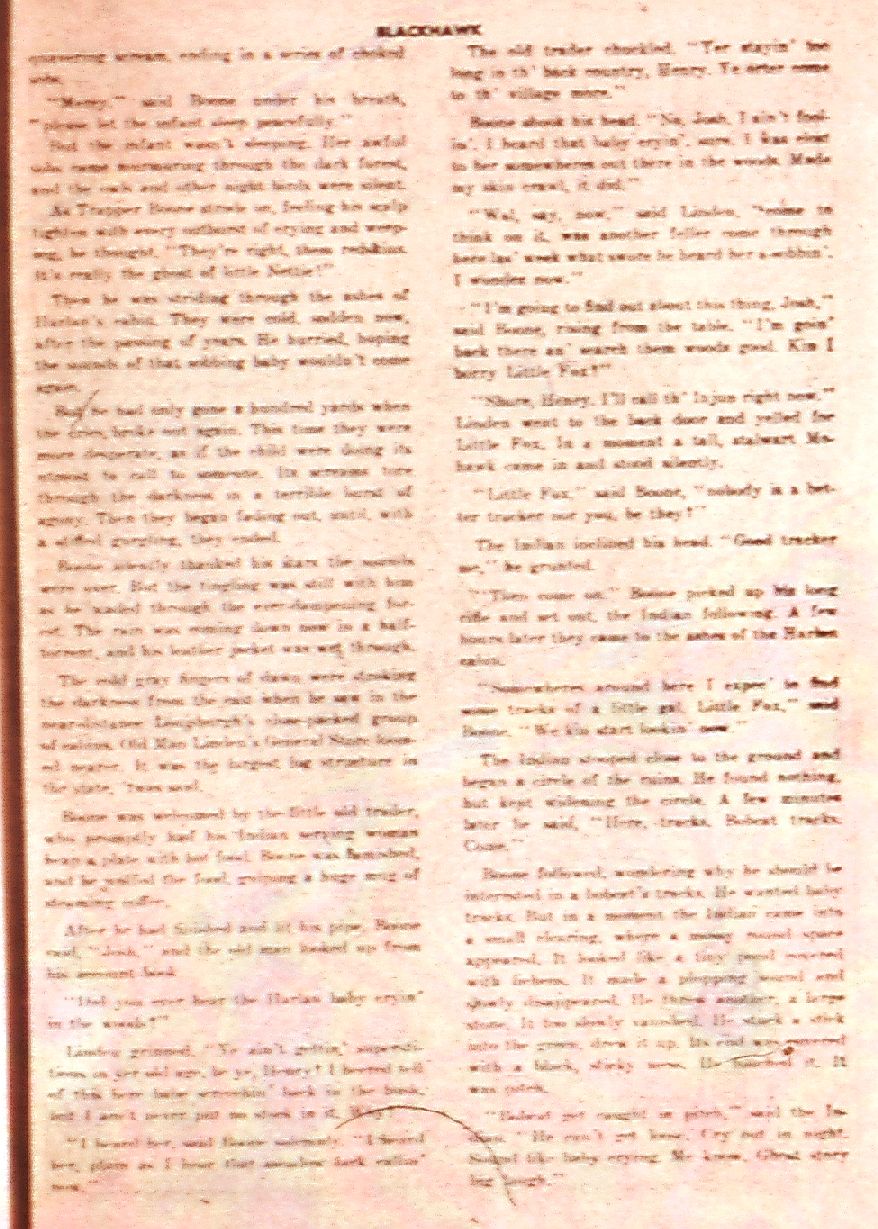 BLACKHAWK
quavering scream, ending in a series of choked
sobs.
"Mercy," said Boone under his breath,
"please let the infant sleep peacefully."
But the infant wasn't sleeping. Her awful
sobs came murmuring through the dark forest,
and the owls and other night birds were silent.
As Trapper Boone strode on, feeling his scalp
tighten with every outburst of crying and weep-
ing, he thought, "They're right, them redskins.
It's really the ghost of little Nettie!"
Then he was striding through the ashes of
Harlan's cabin. They were cold, sodden now,
after the passing of years. He hurried, hoping
the sounds of that sobbing baby wouldn't come
again.
But he had only gone a hundred yards when
the cries broke out again. This time they were
more desperate, as if the child were doing its
utmost to call to someone. Its screams tore
through the darkness in a terrible burst of
agony. Then they began fading out, until, with
a stifled gurgling, they ended.
Boone silently thanked his stars the sounds
were over. But the tingling was still with him
as he waded through the ever-dampening for-
est. The rain was coming down now in a half-
torrent, and his leather jacket was wet through.
The cold gray fingers of dawn were clocking
the darkness from the east when he saw in the
near-distance close-packed group
of cabins. Old Man Linden's General Store loom-
ed nearer. It was the largest log structure in
the state, 'twas said.
Boone was welcomed by the little old trader,
who promptly had his Indian serving woman
heap a plate with hot food. Boone was famished,
and he wolfed the food, gripping a huge mug of
steaming coffee.
After he had finished and lit his pipe, Boone
said, "Josh," and the old man looked up from
his account book.
"Did you ever hear the Harlan baby cryin'
in the woods?"
Linden grinned. "Ye ain't gettin' supersti-
tious in yer old age, be ye, Henry? I heered tell
of this here babe screechin' back in the bush,
but I ain't never put no store in it.
"I heard her, said Boone solemnly. "I heard
her, plain as I hear that lark callin'
now."
The old trader chuckled. "Yer stayin' too
long in th' back country, Henry. Ye orter come
to th' village more."
Boone shook his head. "No, Josh, I ain't fool-
in'. I heard that baby cryin', sure. I was clear
to her somewheres out there in the woods. Made
my skin crawl, it did."
"Wal, say, now," said Linden, "come to
think on it, was another feller come through
here las' week what swore he heard her a-sobbin'.
I wonder now."
"I'm going to find out about this thing, Josh,"
said Boone, rising from the table. "I'm goin'
back there an' search them woods good. Kin I
borry Little Fox?"
"Shure, Henry. I'll call th' Injun right now."
Linden went to the back door and yelled for
Little Fox. In a moment a tall, stalwart Mo-
hawk came in and stood silently.
"Little Fox," said Boone, "nobody is a bet-
ter tracker nor you, be they?"
The Indian inclined his head. "Good tracker
me," he grunted.
"Then come on." Boone picked up his long
rifle and set out, the Indian following. A few
hours later they came to the ashes of the Harlan
cabin.
"Somewheres around here I expec' to find
some tracks of a little gal, Little Fox," said
Boone. "We kin start lookin' now."
The Indian stooped close to the ground and
began a circle of the ruins. He found nothing,
but kept widening the circle. A few minutes
later he said, "Here, tracks. Bobcat tracks.
Come."
Boone followed, wondering why he should be
interested in a bobcat's tracks. He wanted baby
tracks. But in a moment the Indian came into
a small clearing, where a mossy round space
appeared. It looked like a tiny pond covered
with lichens. It made a plopping sound and
slowly disappeared. He threw another, a large
stone. It too slowly vanished. He stuck a stick
into the green, drew it up. Its end was covered
with a black, sticky ooze. He touched it. It
was pitch.
"Bobcat get caught in pitch," said the In-
dian. "He can't get loose. Cry out in night.
Sound like baby crying. Me know. Ghost story
big laugh."